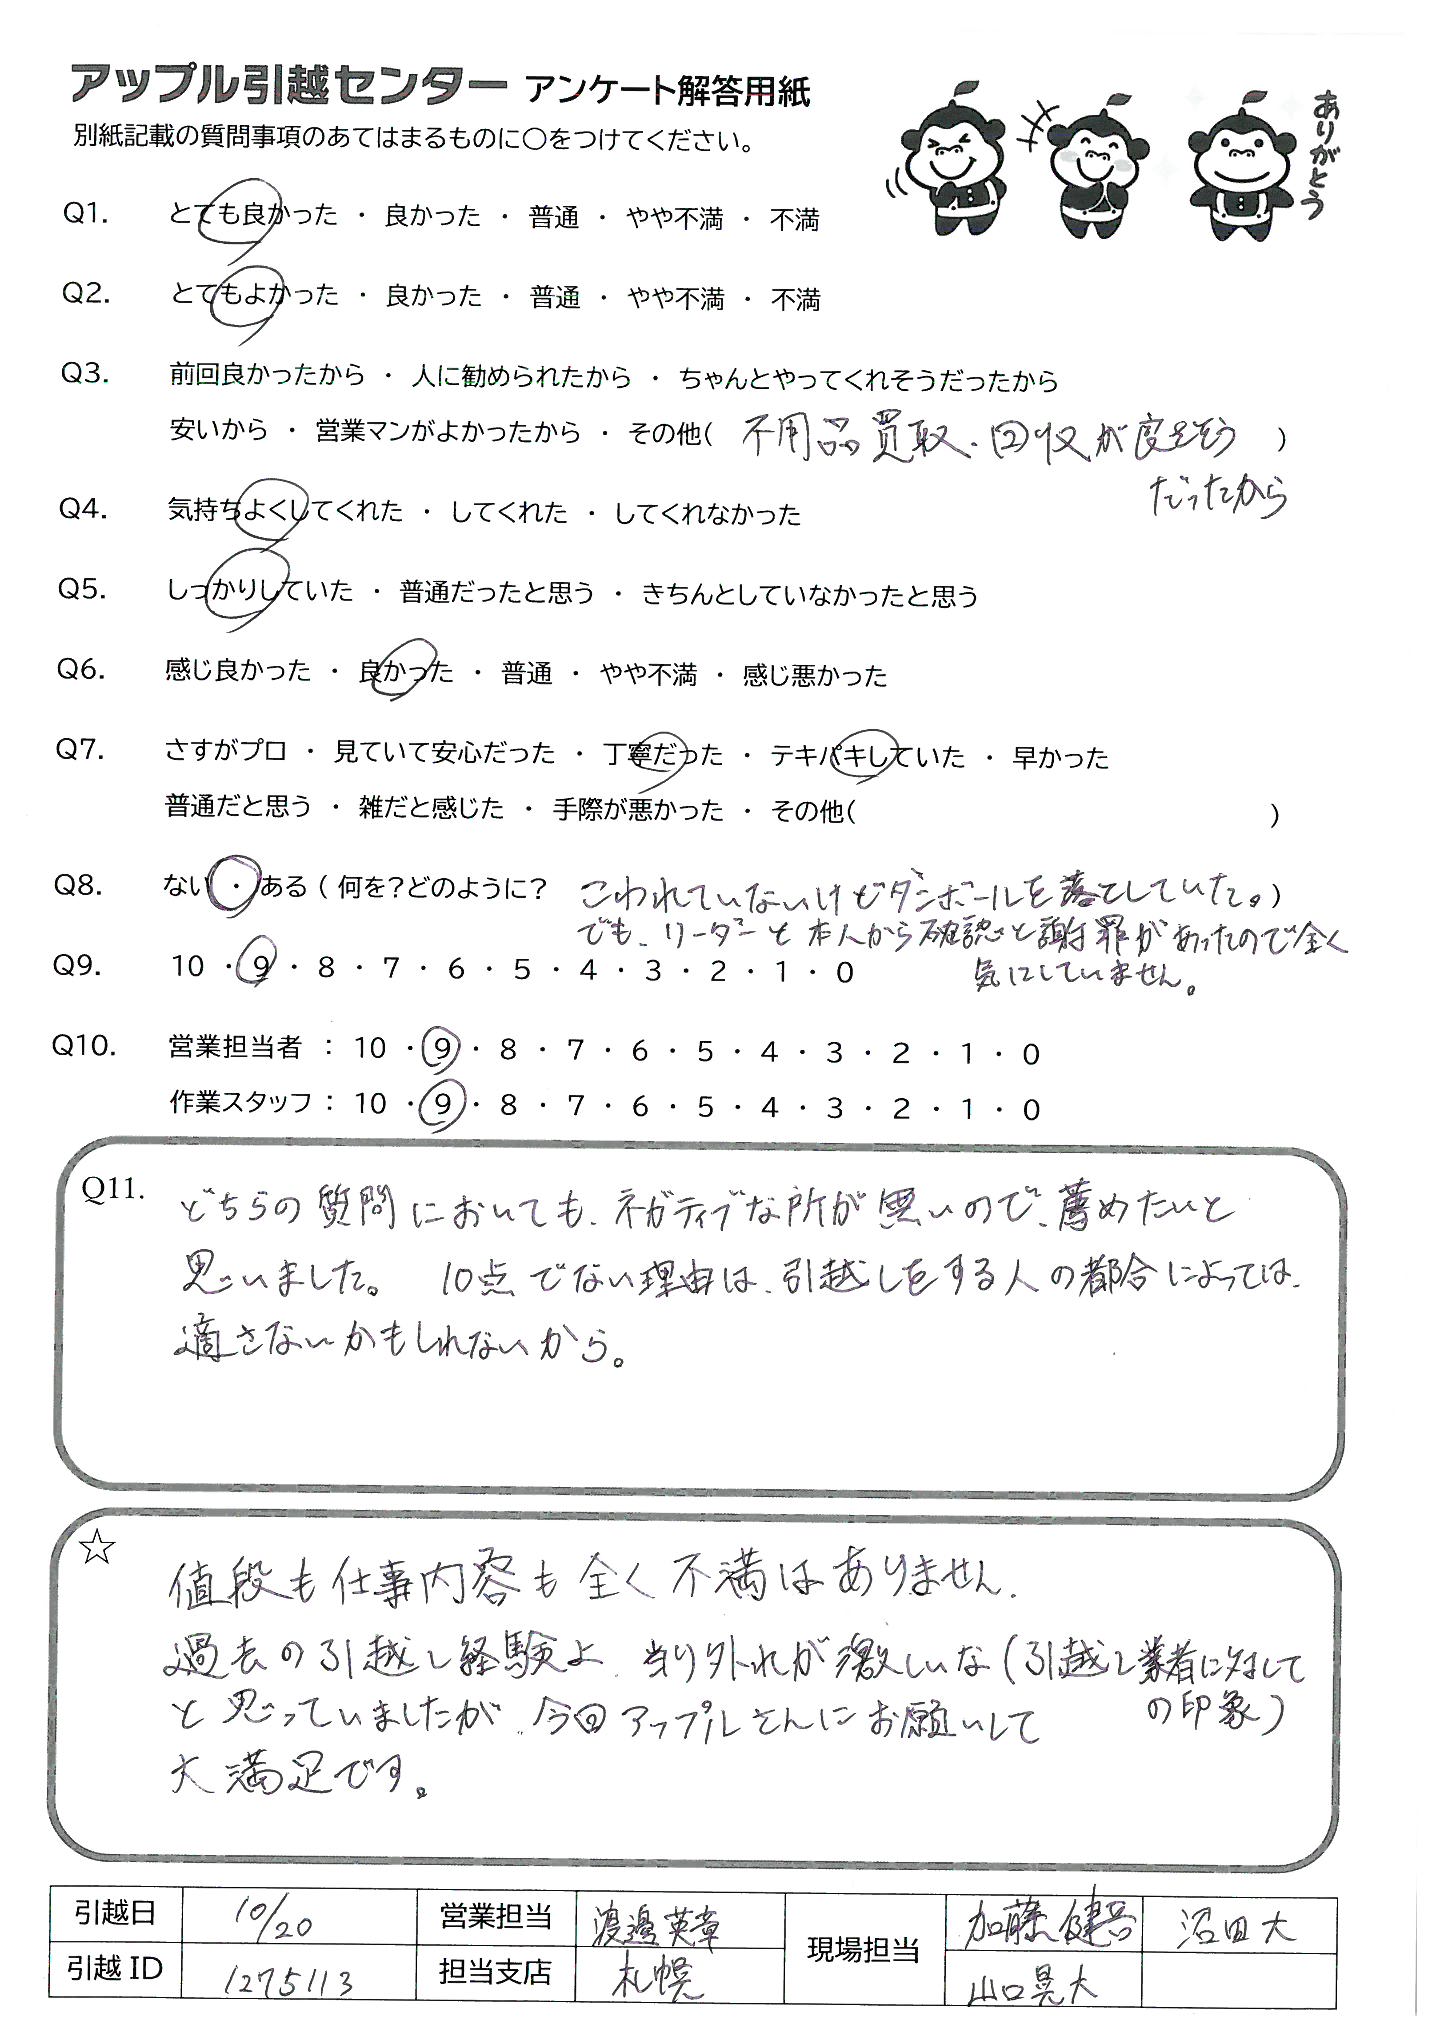 アップル引越センター アンケート解答用紙
別紙記載の質問事項のあてはまるものに○をつけてください。
ありがとう
Q1. とても良かった ・ 良かった ・ 普通 ・ やや不満 ・ 不満
Q2. とてもよかった ・ 良かった ・ 普通 ・ やや不満 ・ 不満
Q3. 前回良かったから ・ 人に勧められたから ・ ちゃんとやってくれそうだったから
安いから ・ 営業マンがよかったから ・ その他( 不用品買取・回収が良さそう )
だったから
Q4. 気持ちよくしてくれた ・ してくれた ・ してくれなかった
Q5. しっかりしていた ・ 普通だったと思う ・ きちんとしていなかったと思う
Q6. 感じ良かった ・ 良かった ・ 普通 ・ やや不満 ・ 感じ悪かった
Q7. さすがプロ ・ 見ていて安心だった ・ 丁寧だった ・ テキパキしていた ・ 早かった
普通だと思う ・ 雑だと感じた ・ 手際が悪かった ・ その他( )
Q8. ない ・ ある ( 何を?どのように? こわれていないけどダンボールを落としていた。)
でも、リーダーと本人から確認と謝罪があったので全く
気にしていません。
Q9. 10 ・ 9 ・ 8 ・ 7 ・ 6 ・ 5 ・ 4 ・ 3 ・ 2 ・ 1 ・ 0
Q10. 営業担当者 : 10 ・ 9 ・ 8 ・ 7 ・ 6 ・ 5 ・ 4 ・ 3 ・ 2 ・ 1 ・ 0
作業スタッフ : 10 ・ 9 ・ 8 ・ 7 ・ 6 ・ 5 ・ 4 ・ 3 ・ 2 ・ 1 ・ 0
Q11. どちらの質問においても、ネガティブな所が無いので、薦めたいと
思いました。 10点でない理由は、引越しをする人の都合によっては、
適さないかもしれないから。
☆
値段も仕事内容も全く不満はありません。
過去の引越し経験上、当り外れが激しいな(引越し業者に対して
の印象)
と思っていましたが、今回アップルさんにお願いして
大満足です。
引越日 10/20 営業担当 渡邊英章 現場担当 加藤健吾 沼田大
引越ID 1275113 担当支店 札幌 山口晃大